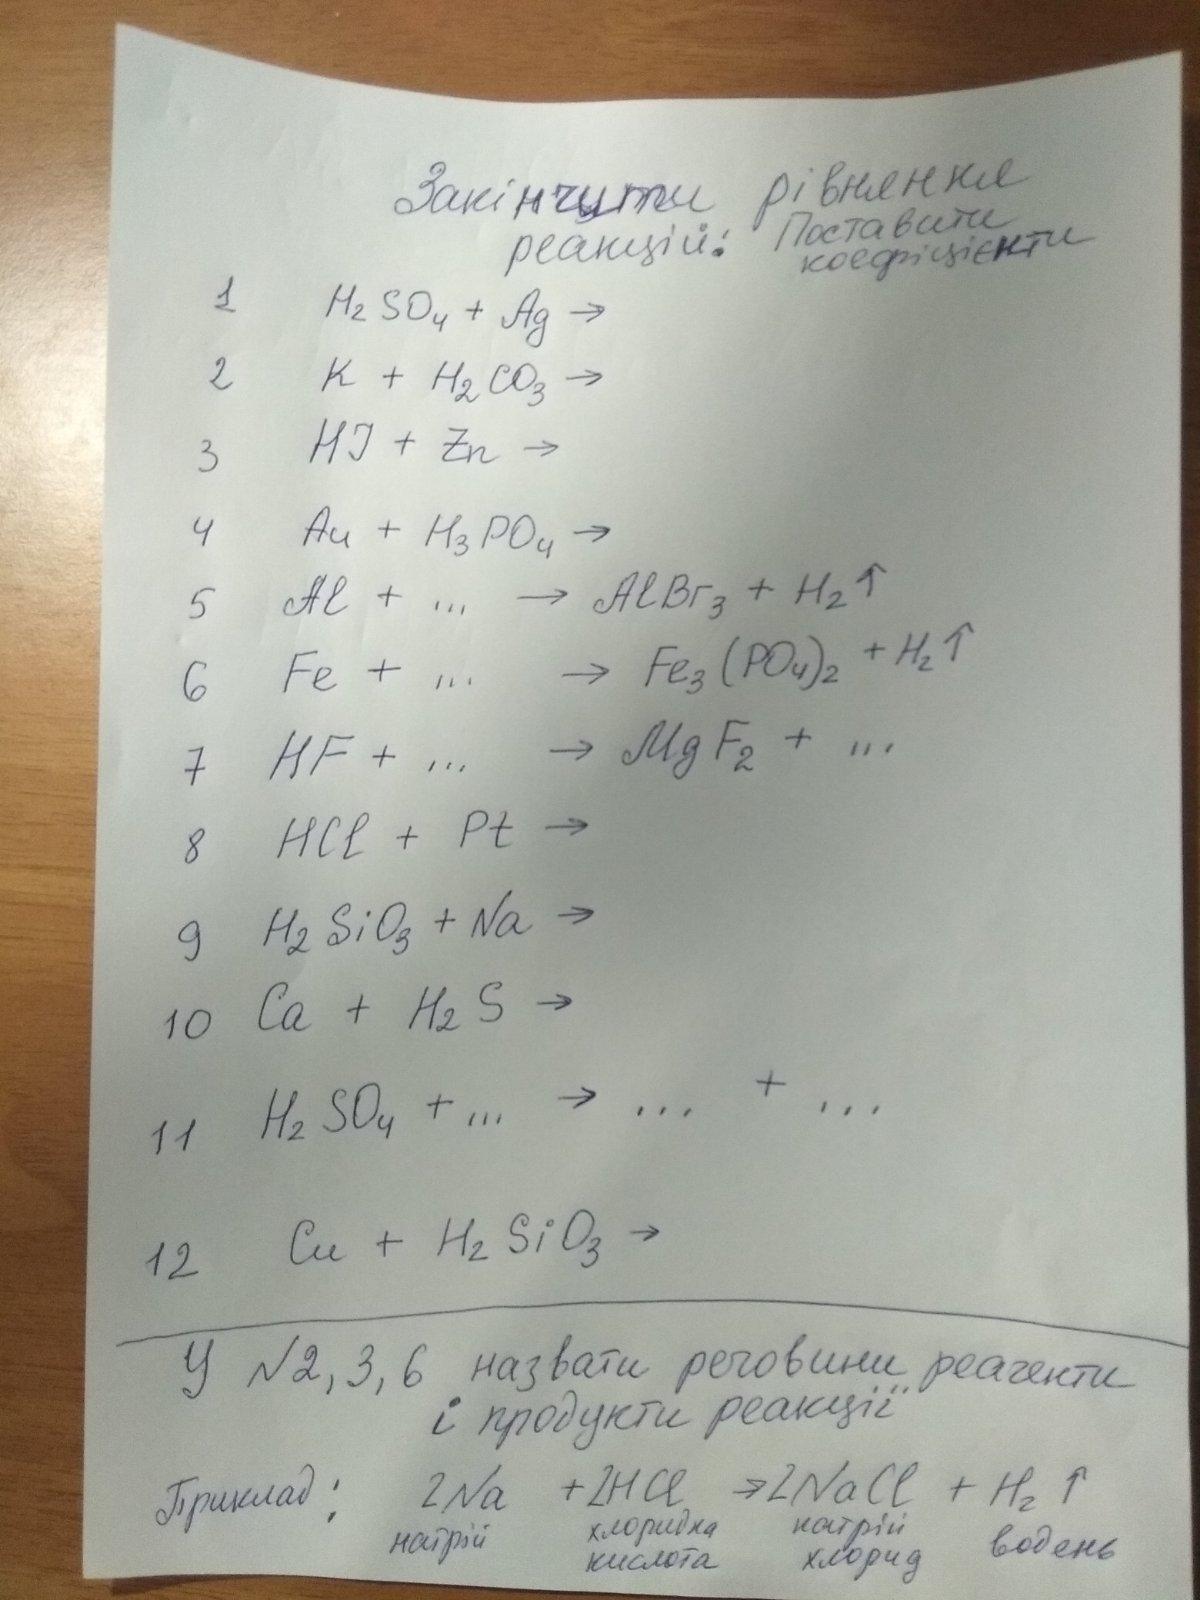 Закінчити рівняння
реакцій: Поставити
коефіцієнти
1 H₂SO₄ + Ag →
2 K + H₂CO₃ →
3 HJ + Zn →
4 Au + H₃PO₄ →
5 Al + ... → AlBr₃ + H₂↑
6 Fe + ... → Fe₃(PO₄)₂ + H₂↑
7 HF + ... → MgF₂ + ...
8 HCl + Pt →
9 H₂SiO₃ + Na →
10 Ca + H₂S →
11 H₂SO₄ + ... → ... + ...
12 Cu + H₂SiO₃ →
У №2, 3, 6 назвати речовини реагенти
і продукти реакції
Приклад: 2Na + 2HCl → 2NaCl + H₂↑
натрій хлоридна натрій водень
кислота хлорид